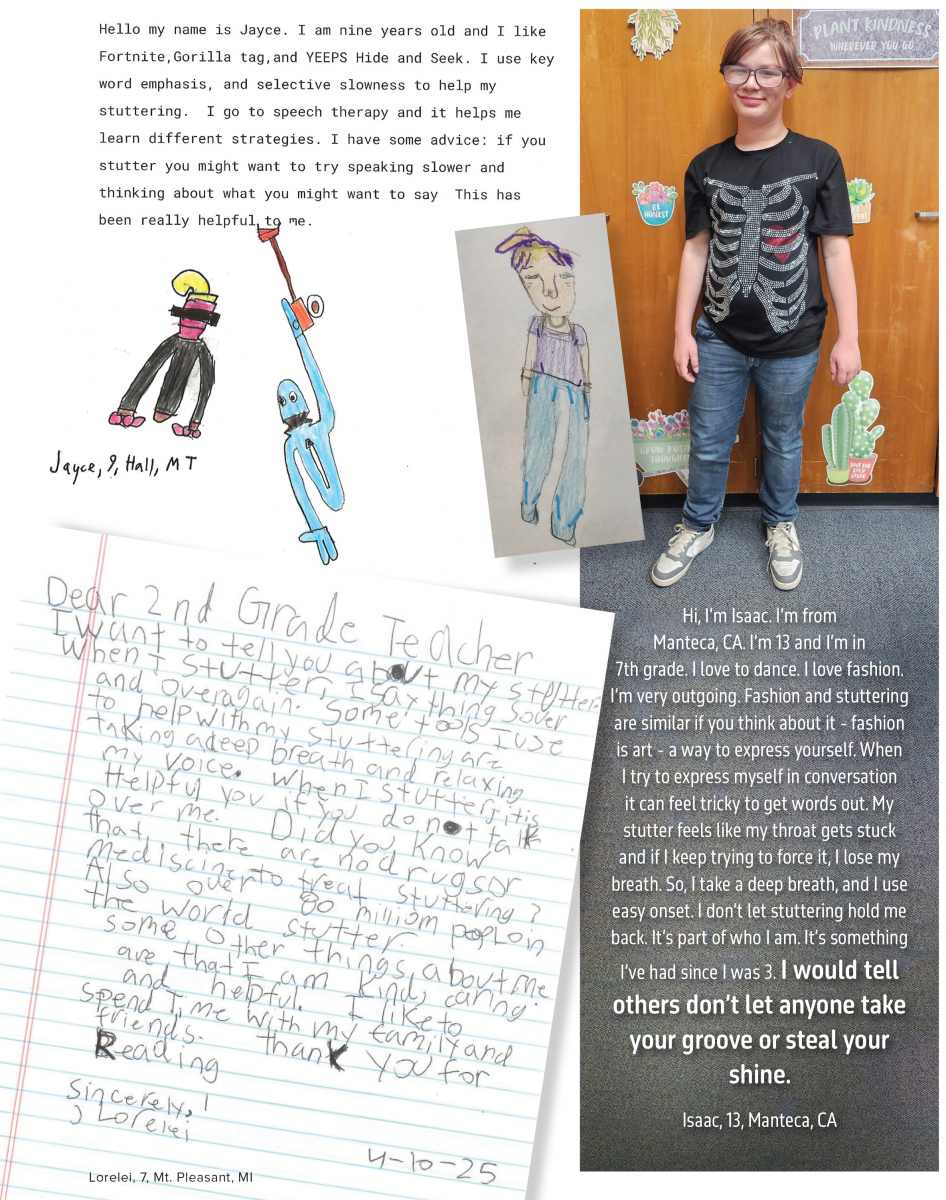 Hello my name is Jayce. I am nine years old and I like
Fortnite,Gorilla tag,and YEEPS Hide and Seek. I use key
word emphasis, and selective slowness to help my
stuttering.  I go to speech therapy and it helps me
learn different strategies. I have some advice: if you
stutter you might want to try speaking slower and
thinking about what you might want to say  This has
been really helpful to me.
Jayce, 9, Hall, MT
PLANT KINDNESS
WHEREVER YOU GO
BE
HONEST
GROW POSITIVE
THOUGHTS
Dear 2nd Grade Teacher
I want to tell you about my stutter.
When I stutter, I say things over
and overagain. Some tools I use
to help with my stuttering are
taking adeep breath and relaxing
my voice. When I stutter, it is
Helpful you if you do not talk
over me. Did you know
that, there are no drugs or
mediscine to treat stuttering?
Also over 80 milliom peoploin
the world stutter.
some other things about me
are that I am kind, caring
and helpful. I like to
spend time with my family and
friends. thank you for
Reading
Sincerely,
Lorelei
4-10-25
Lorelei, 7, Mt. Pleasant, MI
Hi, I'm Isaac. I'm from
Manteca, CA. I'm 13 and I'm in
7th grade. I love to dance. I love fashion.
I'm very outgoing. Fashion and stuttering
are similar if you think about it - fashion
is art - a way to express yourself. When
I try to express myself in conversation
it can feel tricky to get words out. My
stutter feels like my throat gets stuck
and if I keep trying to force it, I lose my
breath. So, I take a deep breath, and I use
easy onset. I don't let stuttering hold me
back. It's part of who I am. It's something
I've had since I was 3. I would tell
others don't let anyone take
your groove or steal your
shine.
Isaac, 13, Manteca, CA